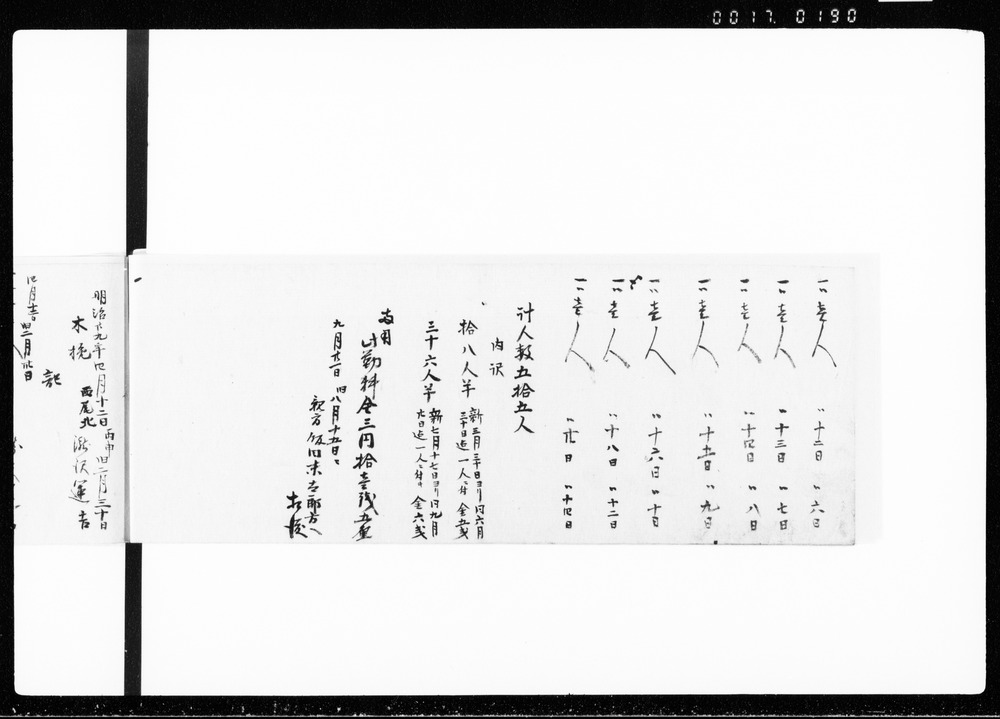 0017. 0190
一〃壱人 〃十二日 〃六日
一〃壱人 〃十三日 〃七日
一〃壱人 〃十四日 〃八日
一〃壱人 〃十五日 〃九日
一〃壱人 〃十六日 〃十日
一〃壱人 〃十八日 〃十二日
一〃壱人 〃廿日 〃十四日
計人数五拾五人
内沢
拾八人半 新三月三十日ヨリ旧六月
三十日迄一人ニ付金五戋
三十六人半 新七月十七日ヨリ旧九月
日迄一人ニ付金六戋
両用
〆勤料金三円拾壱戋五厘
九月廿二日 旧八月十五日ニ
親方飯田末太郎方へ
相渡
明治廿九年四月十二日 丙申旧二月三十日
木挽 西尾北 滝沢運吉
記
四月 日
旧三月廿日